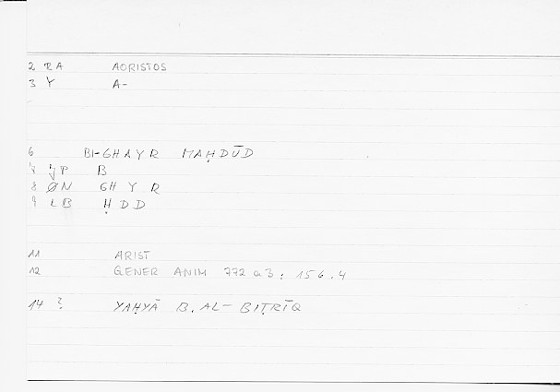 2 RA AORISTOS
3 Y A-
6 BI-GHAYR MAḤDŪD
7 IJP B
8 ØN GHYR
9 LB ḤDD
11 ARIST
12 GENER ANIM 772 a 3 ; 156.4
14 ? YAḤYĀ B. AL-BIṬRĪQ